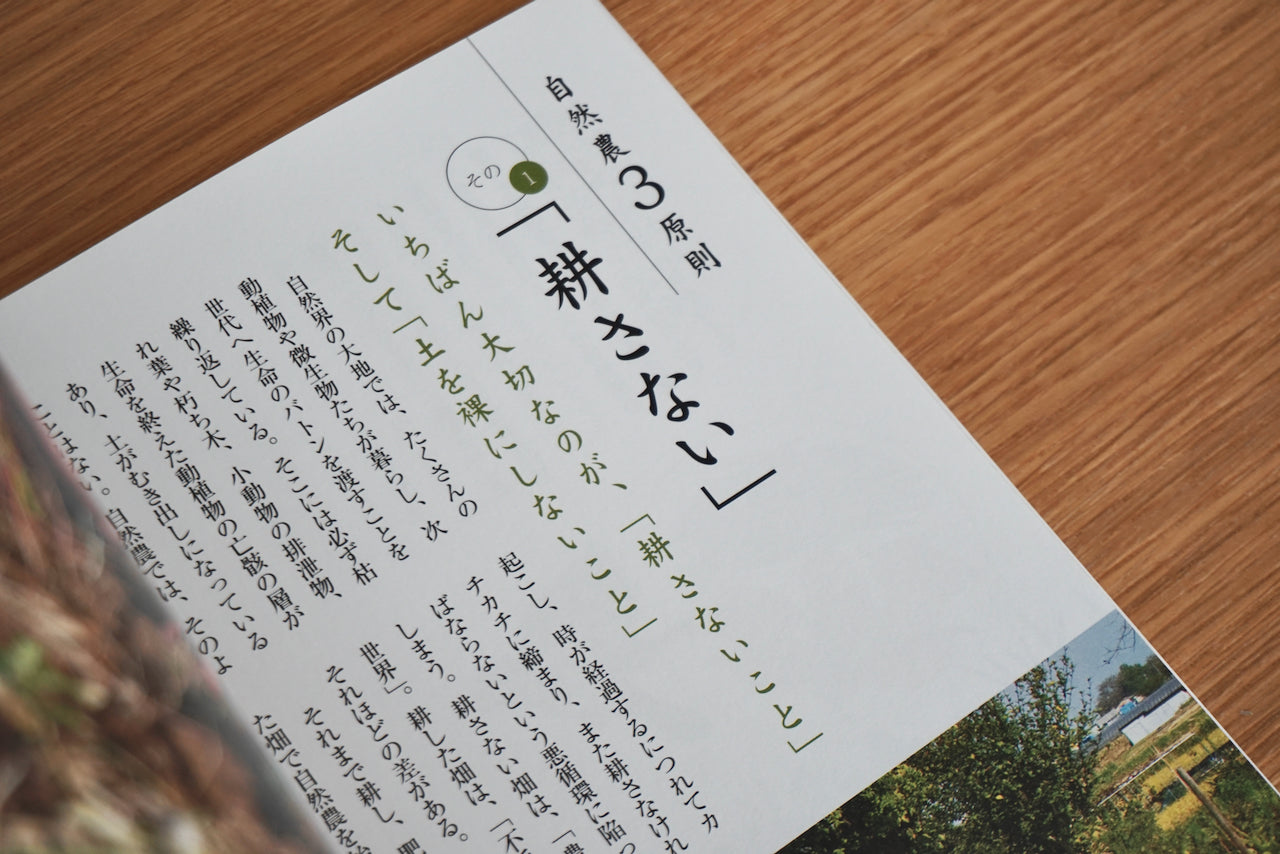 自然農3原則
その1
「耕さない」
いちばん大切なのが、「耕さないこと」
そして「土を裸にしないこと」
自然界の大地では、たくさんの
動植物や微生物たちが暮らし、次
世代へ生命のバトンを渡すことを
繰り返している。そこには必ず枯
れ葉や朽ち木、小動物の排泄物、
生命を終えた動植物の亡骸の層が
あり、土がむき出しになっている
ことはない。自然農では、そのよ
起こし、時が経過するにつれてカ
チカチに締まり、また耕さなけれ
ばならないという悪循環に陥っ
しまう。耕さない畑は、「農
世界」。耕した畑は、「不
それほどの差がある。
それまで耕し、肥
た畑で自然農を